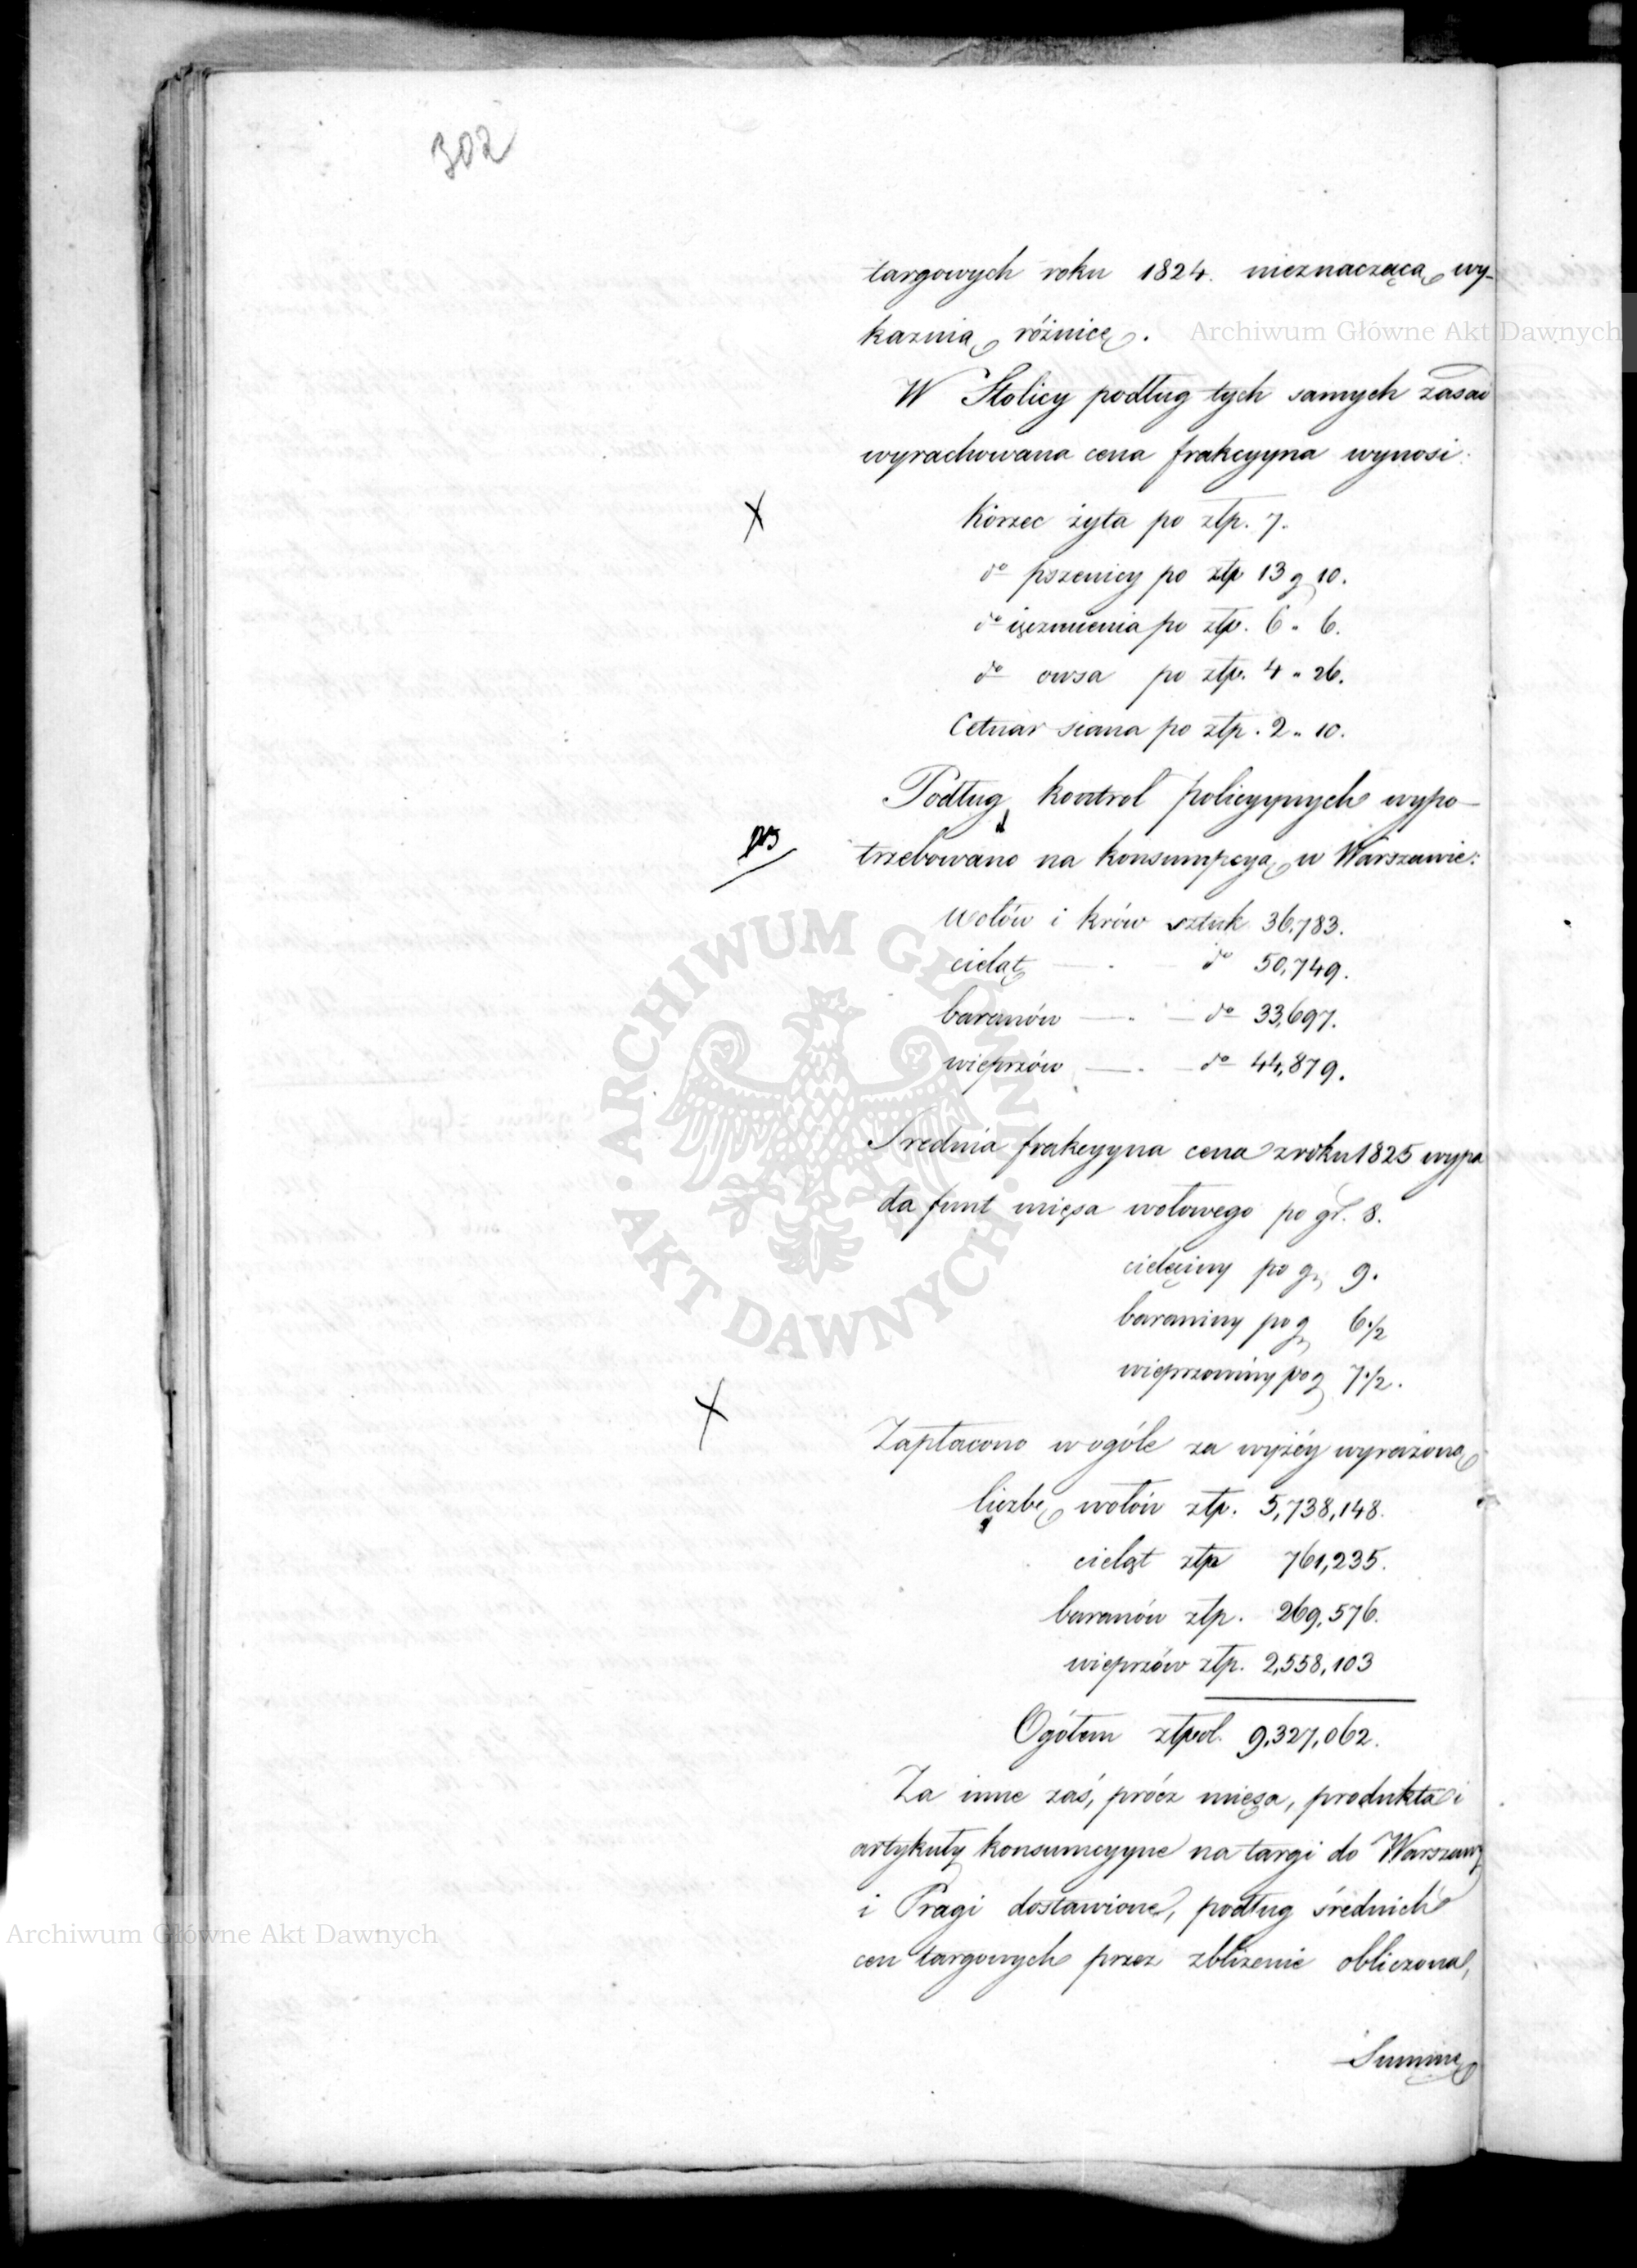 302
targowych roku 1824. nieznaczącą wy-
kaznią różnicę.
Archiwum Główne Akt Dawnych
W Stolicy podług tych samych zasad
wyrachowana cena frakcyyna wynosi:
X Korzec żyta po złp. 7.
do pszenicy po złp 13 g 10.
do ięczmienia po złp. 6 " 6.
do owsa po złp. 4 " 26.
Cetnar siana po złp. 2 " 10.
Podług kontrol policyynych wypo-
trzebowano na konsumpcyą w Warszawie:
wołów i krów sztuk 36,783.
cieląt — do 50,749.
baranów — do 33,697.
wieprzów — do 44,879.
ARCHIWUM GŁÓWNE AKT DAWNYCH
Srednia frakcyyna cena z roku 1825 wypa
da funt mięsa wołowego po gr. 8.
cielęciny po g 9.
baraniny po g 6 1/2
wieprzowiny po g 7 1/2.
X Zapłacono w ogóle za wyżéy wyrażoną
liczbę wołów złp. 5,738,148.
cieląt złp 761,235.
baranów złp. 269,576.
wieprzów złp. 2,558,103
Ogółem złpol. 9,327,062.
Za inne zaś, prócz mięsa, produkta i
artykuły konsumcyyne na targi do Warszawy
i Pragi dostawione, podług średnich
Archiwum Główne Akt Dawnych
cen targowych przez zbliżenie obliczona,
Summę